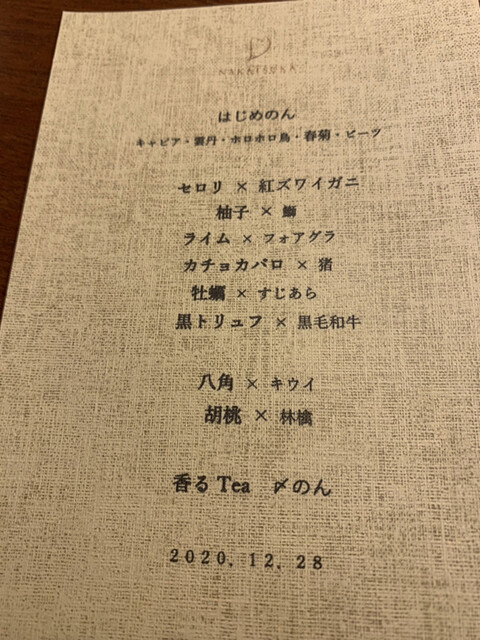 NAKATSUKA
はじめのん
キャビア・雲丹・ホロホロ鳥・春菊・ビーツ
セロリ × 紅ズワイガニ
柚子 × 鰤
ライム × フォアグラ
カチョカバロ × 猪
牡蠣 × すじあら
黒トリュフ × 黒毛和牛
八角 × キウイ
胡桃 × 林檎
香るTea 〆のん
2020.12.28